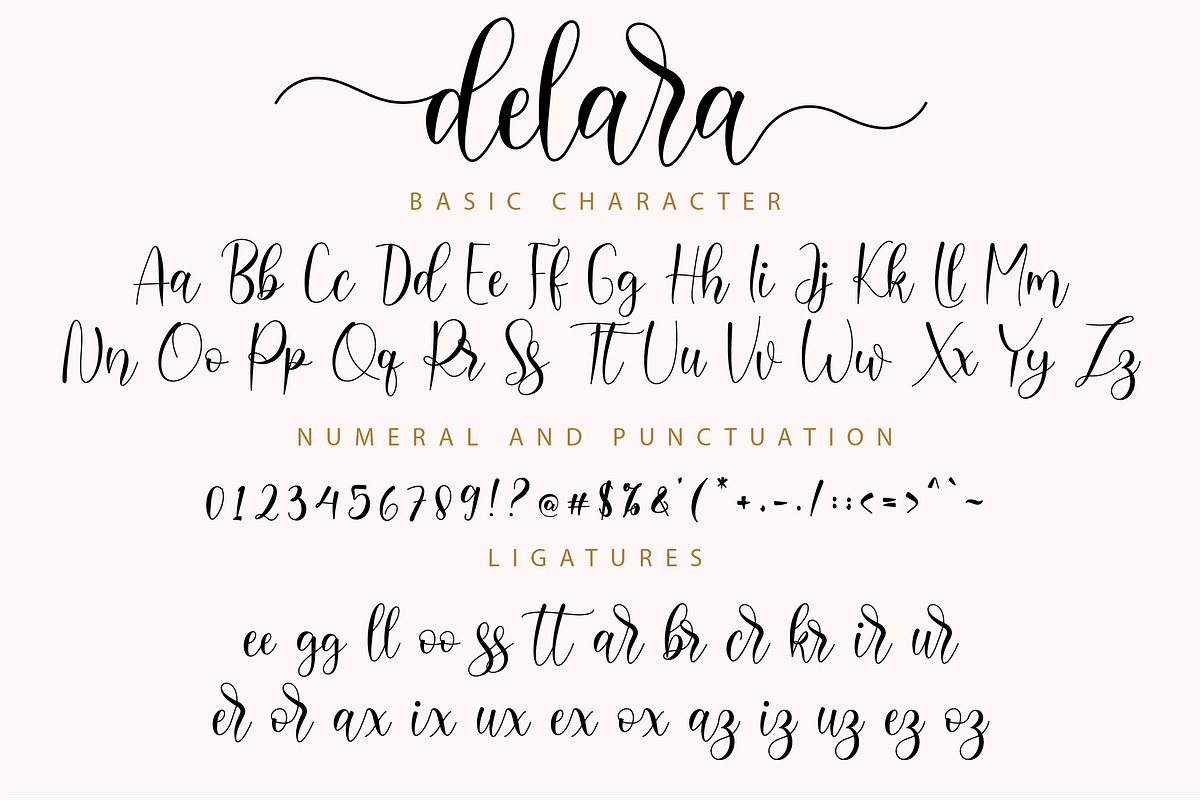 delara
BASIC CHARACTER
Aa Bb Cc Dd Ee Ff Gg Hh Ii Jj Kk Ll Mm
Nn Oo Pp Qq Rr Ss Tt Uu Vv Ww Xx Yy Zz
NUMERAL AND PUNCTUATION
0123456789!?@#$%&'(*+,-./:;<=>^`~
LIGATURES
ee gg ll oo ss tt ar br cr kr ir ur
er or ax ix ux ex ox az iz uz ez oz